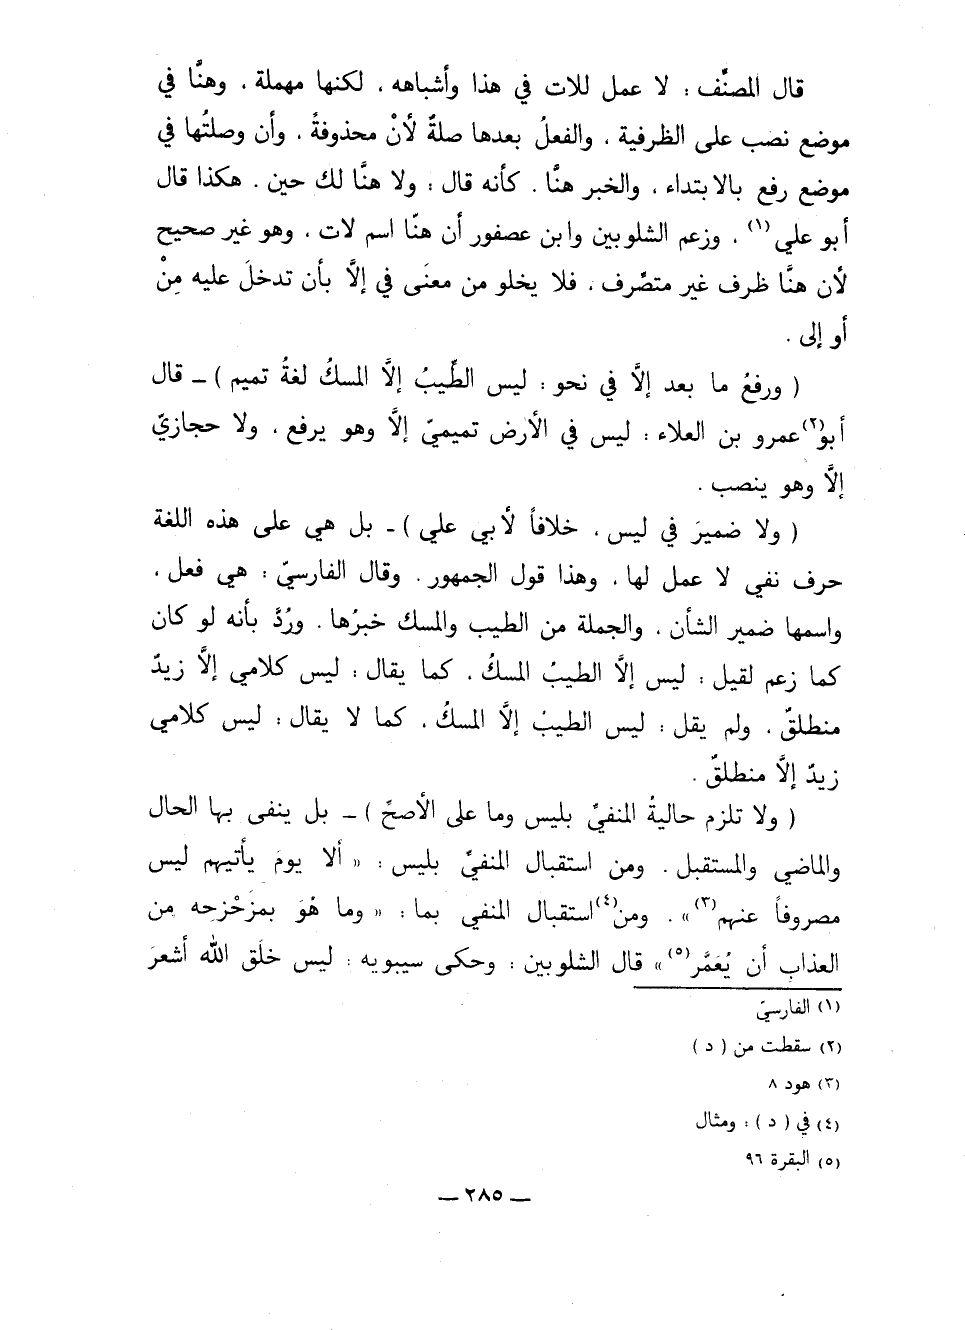 قال المصنَّف : لا عمل للات في هذا وأشباهه ، لكنها مهملة ، وهنَّا في
موضع نصب على الظرفية ، والفعلُ بعدها صلةٌ لأنْ محذوفةً ، وأن وصلتُها في
موضع رفع بالابتداء ، والخبر هنَّا . كأنه قال : ولا هنَّا لك حين . هكذا قال
أبو علي(١) ، وزعم الشلوبين وابن عصفور أن هنّا اسم لات ، وهو غير صحيح
لأن هنَّا ظرف غير متصِّرف ، فلا يخلو من معنَى في إلَّا بأن تدخلَ عليه مِنْ
أو إلى .
( ورفعُ ما بعد إلَّا في نحو : ليس الطِّيبُ إلَّا المسكُ لغةُ تميم ) ــ قال
أبو(٢)عمرو بن العلاء : ليس في الأرض تميميّ إلَّا وهو يرفع ، ولا حجازيّ
إلَّا وهو ينصب .
( ولا ضميرَ في ليس ، خلافاً لأبي علي ) ــ بل هي على هذه اللغة
حرف نفي لا عمل لها ، وهذا قول الجمهور . وقال الفارسيّ : هي فعل ،
واسمها ضمير الشأن ، والجملة من الطيب والمسك خبرُها . ورُدَّ بأنه لو كان
كما زعم لقيل : ليس إلَّا الطيبُ المسكُ ، كما يقال : ليس كلامي إلَّا زيدٌ
منطلقٌ ، ولم يقل : ليس الطيبُ إلَّا المسكُ ، كما لا يقال : ليس كلامي
زيدٌ إلَّا منطلقٌ .
( ولا تلزم حاليةُ المنفيِّ بليس وما على الأصحِّ ) ــ بل ينفى بها الحال
والماضي والمستقبل . ومن استقبال المنفيّ بليس : « ألا يومَ يأتيهم ليس
مصروفاً عنهم(٣)» . ومن(٤)استقبال المنفي بما : « وما هُوَ بمزَحْزحِه من
العذابِ أن يُعَمَّر(٥)» قال الشلوبين : وحكى سيبويه : ليس خلَق اللهُ أشعرَ
(١) الفارسيّ
(٢) سقطت من ( د )
(٣) هود ٨
(٤) في ( د ) : ومثال
(٥) البقرة ٩٦
ــ ٢٨٥ ــ